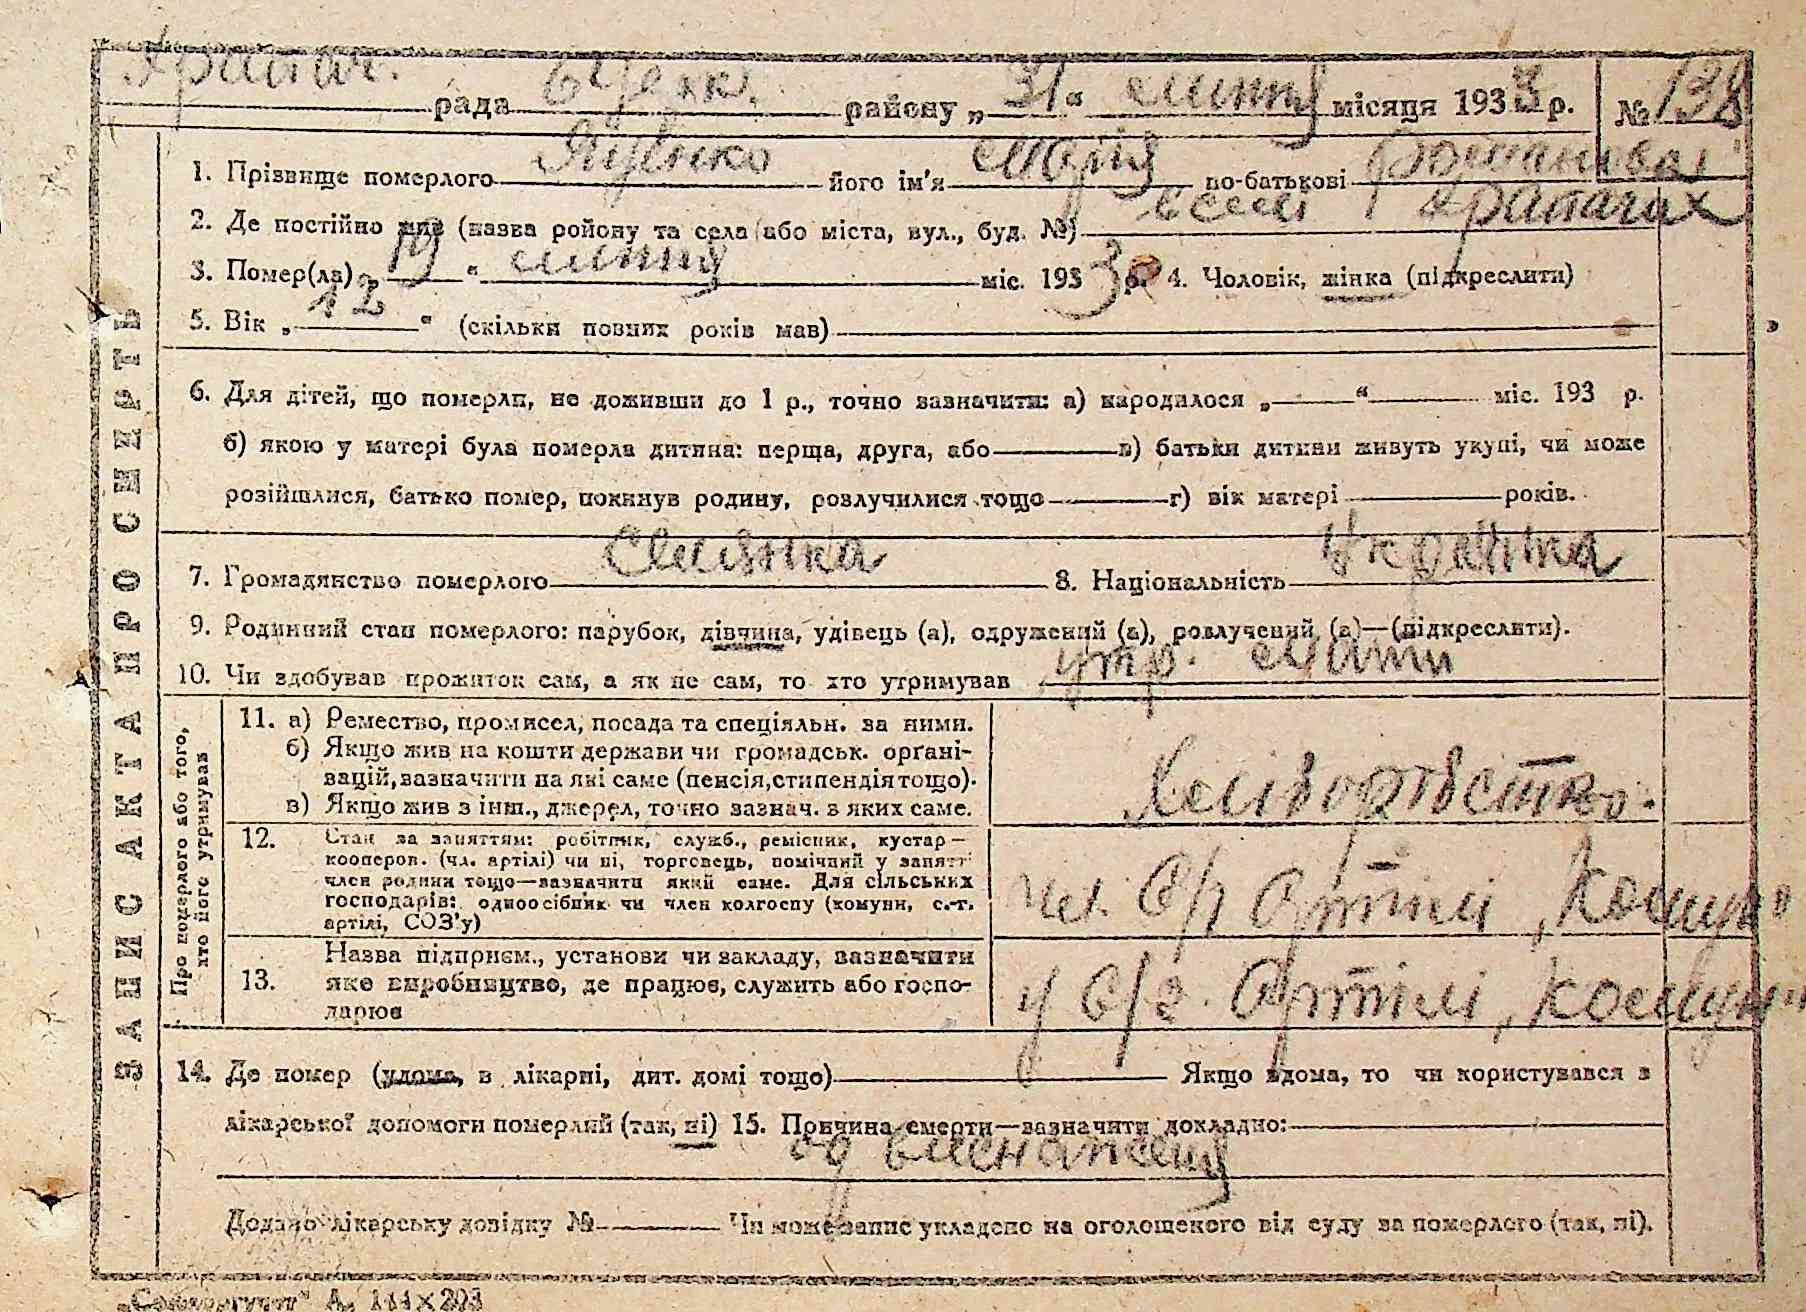 Храпач. рада Буцек. району „31“ липня місяця 1933 р. № 138
1. Прізвище померлого Яценко його ім'я Марія по-батькові Романова
2. Де постійно жив (назва ройону та села або міста, вул., буд. №) в селі Храпачах
3. Помер(ла) „19“ липня міс. 1933 р. 4. Чоловік, жінка (підкреслити)
5. Вік „12“ (скільки повних років мав)
6. Для дітей, що померли, не доживши до 1 р., точно зазначити: а) народилося „ “ міс. 193 р.
б) якою у матері була померла дитина: перша, друга, або в) батьки дитини живуть укупі, чи може
розійшлися, батько помер, покинув родину, розлучилися тощо г) вік матері років.
7. Громадянство померлого Селянка 8. Національність Українка
9. Родинний стан померлого: парубок, дівчина, удівець (а), одружений (а), розлучений (а)—(підкреслити).
10. Чи здобував прожиток сам, а як не сам, то хто утримував утр. мати
ЗАПИС АКТА ПРО СМЕРТЬ
Про померлого або того,
хто його утримував
11. а) Ремество, промисел, посада та спеціяльн. за ними.
б) Якщо жив на кошти держави чи громадськ. органі-
зацій, зазначити на які саме (пенсія, стипендія тощо).
в) Якщо жив з інш., джерел, точно зазнач. з яких саме.
Хліборобство.
12. Стан за заняттям: робітник, служб., ремісник, кустар—
кооперов. (чл. артілі) чи ні, торговець, помічний у занятті
член родини тощо—зазначити який саме. Для сільських
господарів: одноосібник чи член колгоспу (комуни, с.-г.
артілі, СОЗ'у)
чл. С/г Артілі „Комун“
13. Назва підприєм., установи чи закладу, зазначити
яке виробництво, де працює, служить або госпо-
дарює
у С/г. Артілі „Комун“
14. Де помер (удома, в лікарні, дит. домі тощо) Якщо вдома, то чи користувався з
лікарської допомоги померлий (так, ні) 15. Причина смерти—зазначити докладно:
од виснаження
Додано лікарську довідку № Чи може запис укладено на оголошеного від суду за померлого (так, ні).
А. 144×203